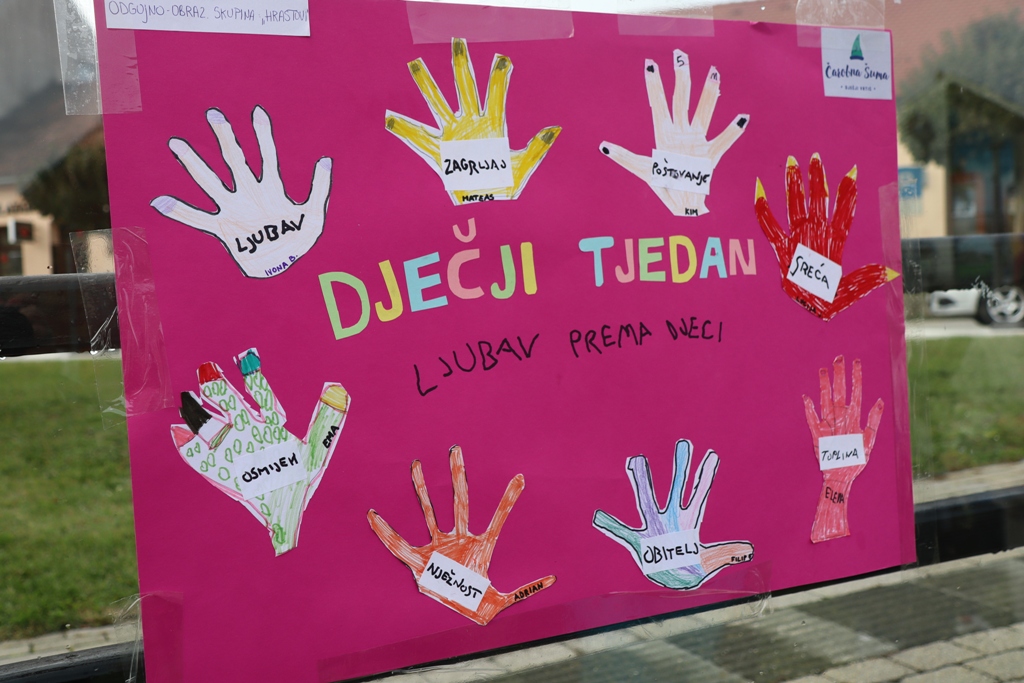 ODGOJNO-OBRAZ. SKUPINA „HRASTOVI
Čarobna Šuma
DJEČJI VRTIĆ
LJUBAV
IVONA B.
ZAGRLJAJ
MATEAS
5
POŠTOVANJE
KIM
SREĆA
DJEČJI TJEDAN
LJUBAV PREMA DJECI
OSMIJEH
EMA
NJEŽNOST
ADRIAN
OBITELJ
FILIP
TOPLINA
ELEMA